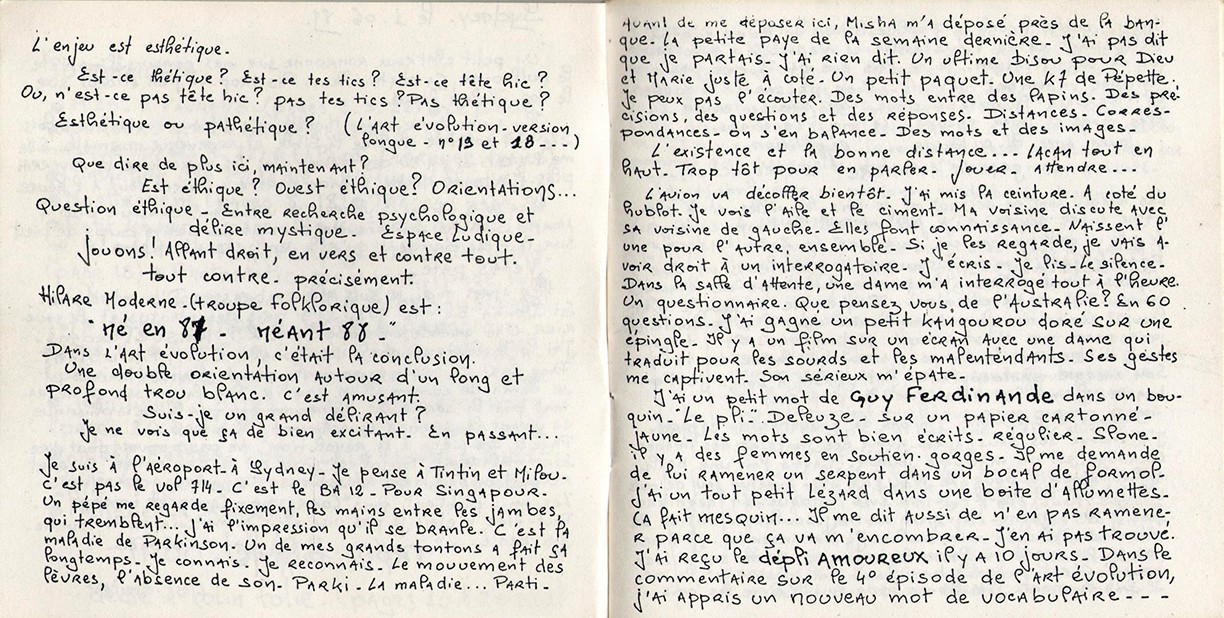 L'enjeu est esthétique.
Est-ce thétique? Est-ce tes tics? Est-ce tête hic?
Ou, n'est-ce pas tête hic? pas tes tics? Pas thétique?
Esthétique ou pathétique? (L'ART évolution-version
longue - n°19 et 28---)
Que dire de plus ici, maintenant?
Est éthique? Ouest éthique? Orientations...
Question éthique - Entre recherche psychologique et
délire mystique - Espace Ludique-
jouons! Allant droit, en vers et contre tout.
tout contre. précisément.
Hilare Moderne-(troupe folklorique) est:
né en 87 néant 88-
Dans l'Art évolution, c'était la conclusion.
Une double orientation autour d'un long et
profond trou blanc. c'est amusant.
Suis-je un grand délirant?
Je ne vois que ça de bien excitant. En passant...
Je suis à l'Aéroport-à Sydney-Je pense à Tintin et Milou-
C'est pas le vol 714- C'est le BA 12- Pour Singapour-
Un pépé me regarde fixement, les mains entre les jambes,
qui tremblent... j'ai l'impression qu'il se branle. C'est la
maladie de Parkinson. Un de mes grands tontons a fait ça
longtemps. Je connais. Je reconnais. Le mouvement des
lèvres, l'absence de son. Parki- La maladie... Parti-
Avant de me déposer ici, Misha m'a déposé près de la ban-
que. La petite paye de la semaine dernière- J'ai pas dit
que je partais- J'ai rien dit. Un ultime bisou pour Dieu
et Marie juste à coté- Un petit paquet. Une K7 de Pépette.
Je peux pas l'écouter. Des mots entre des lapins. Des pré-
cisions, des questions et des réponses. Distances- Corres-
pondances- on s'en balance- Des mots et des images-
L'existence et la bonne distance... LACAN tout en
haut. Trop tôt pour en parler. Jouer. Attendre...
L'avion va décoller bientôt. J'ai mis la ceinture. A coté du
hublot. Je vois l'aile et le ciment. Ma voisine discute avec
sa voisine de gauche- Elles font connaissance- Naissent l'
une pour l'autre. ensemble- Si je les regarde, je vais a-
voir droit à un interrogatoire- J'écris- Je lis-Le silence-
Dans la salle d'attente, une dame m'a interrogé tout à l'heure.
Un questionnaire. Que pensez vous de l'Australie? En 60
questions- J'ai gagné un petit kangourou doré sur une
épingle- Il y a un film sur un écran avec une dame qui
traduit pour les sourds et les malentendants. Ses gestes
me captivent. Son sérieux m'épate-
J'ai un petit mot de GUY FERDINANDE dans un bou-
quin-"Le pli"- Deleuze- sur un papier cartonné-
jaune- Les mots sont bien écrits- régulier- Slone-
il y a des femmes en soutien-gorges- Il me demande
de lui ramener un serpent dans un bocal de formol-
J'ai un tout petit Lézard dans une boite d'allumettes-
Ca fait mesquin... Il me dit aussi de n'en pas ramene-
r parce que ça va m'encombrer- J'en ai pas trouvé.
J'ai reçu le dépli AMOUREUX il y a 10 jours- Dans le
commentaire sur le 4° épisode de l'art évolution,
j'ai appris un nouveau mot de vocabulaire---